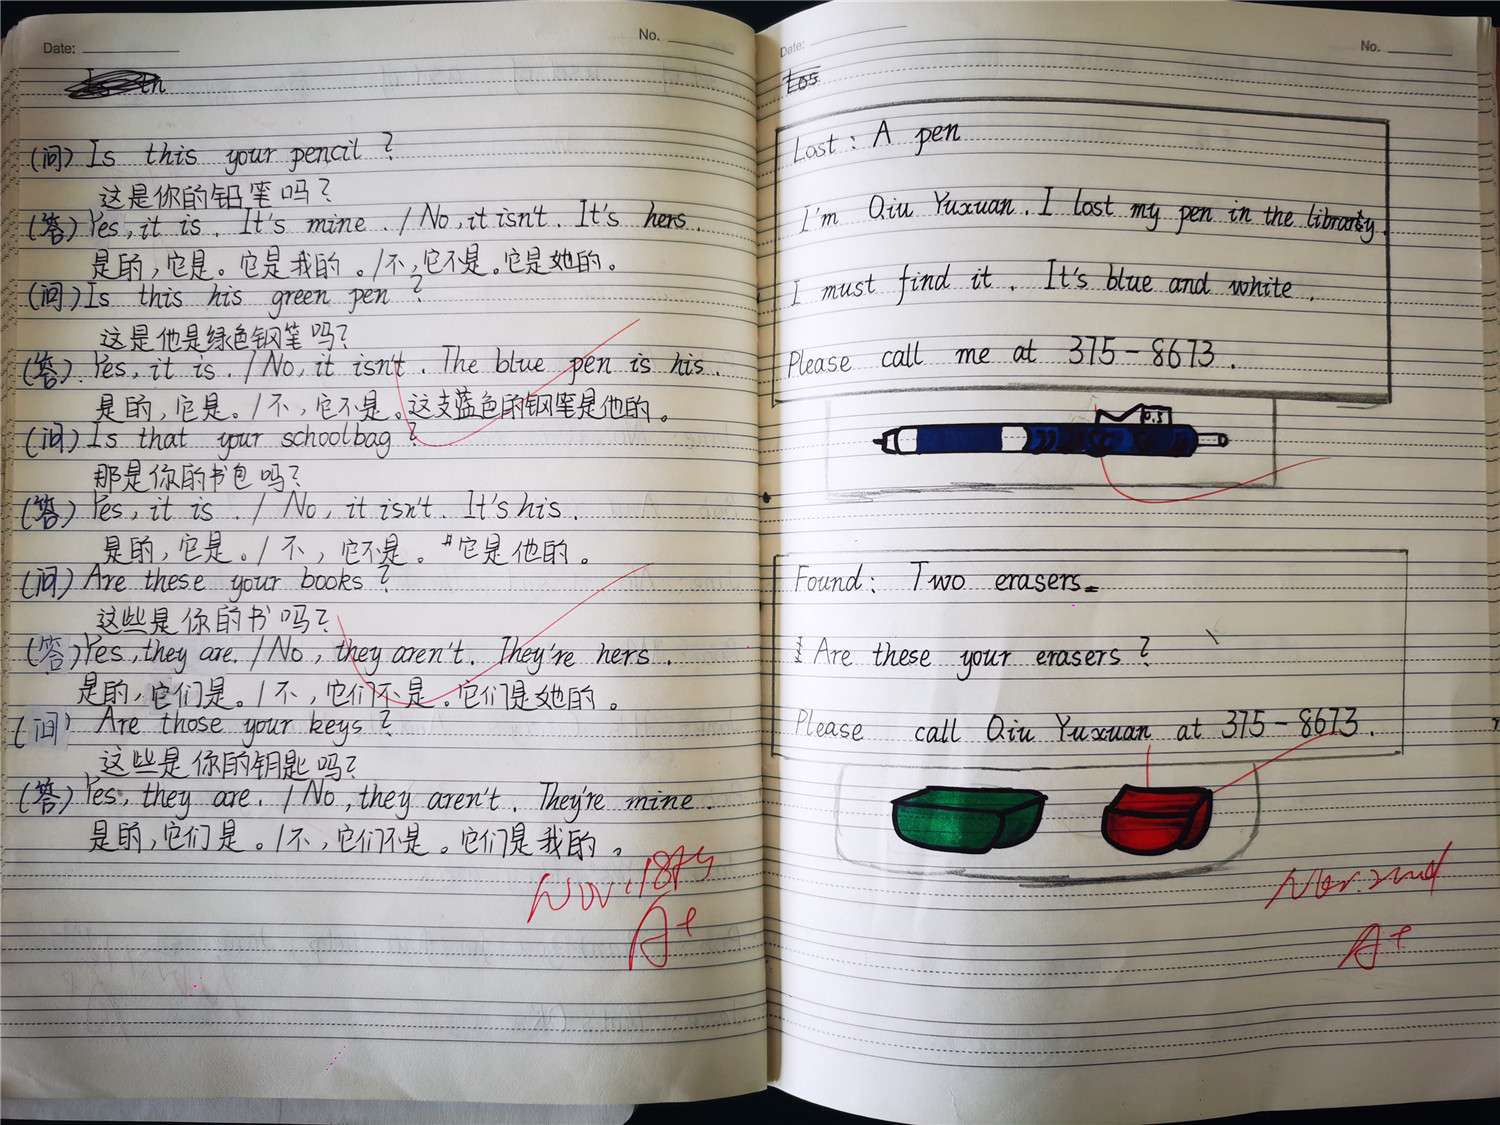 Date:
No.
(问) Is this your pencil ?
这是你的铅笔吗?
(答) Yes, it is . It's mine . / No, it isn't . It's hers .
是的,它是。它是我的。/不,它不是。它是她的。
(问) Is this his green pen ?
这是他是绿色钢笔吗?
(答) Yes, it is . / No, it isn't . The blue pen is his .
是的,它是。/不,它不是。这支蓝色的钢笔是他的。
(问) Is that your schoolbag ?
那是你的书包吗?
(答) Yes, it is . / No, it isn't. It's his .
是的,它是。/不,它不是。它是他的。
(问) Are these your books ?
这些是你的书吗?
(答) Yes, they are. / No, they aren't. They're hers .
是的,它们是。/不,它们不是。它们是她的。
(问) Are those your keys ?
这些是你的钥匙吗?
(答) Yes, they are. / No, they aren't. They're mine .
是的,它们是。/不,它们不是。它们是我的。
A+
Date:
No.
Los
Lost : A pen
I'm Qiu Yuxuan . I lost my pen in the library .
I must find it . It's blue and white .
Please call me at 375-8673 .
0.5
Found : Two erasers.
Are these your erasers ?
Please call Qiu Yuxuan at 375-8673 .
A+